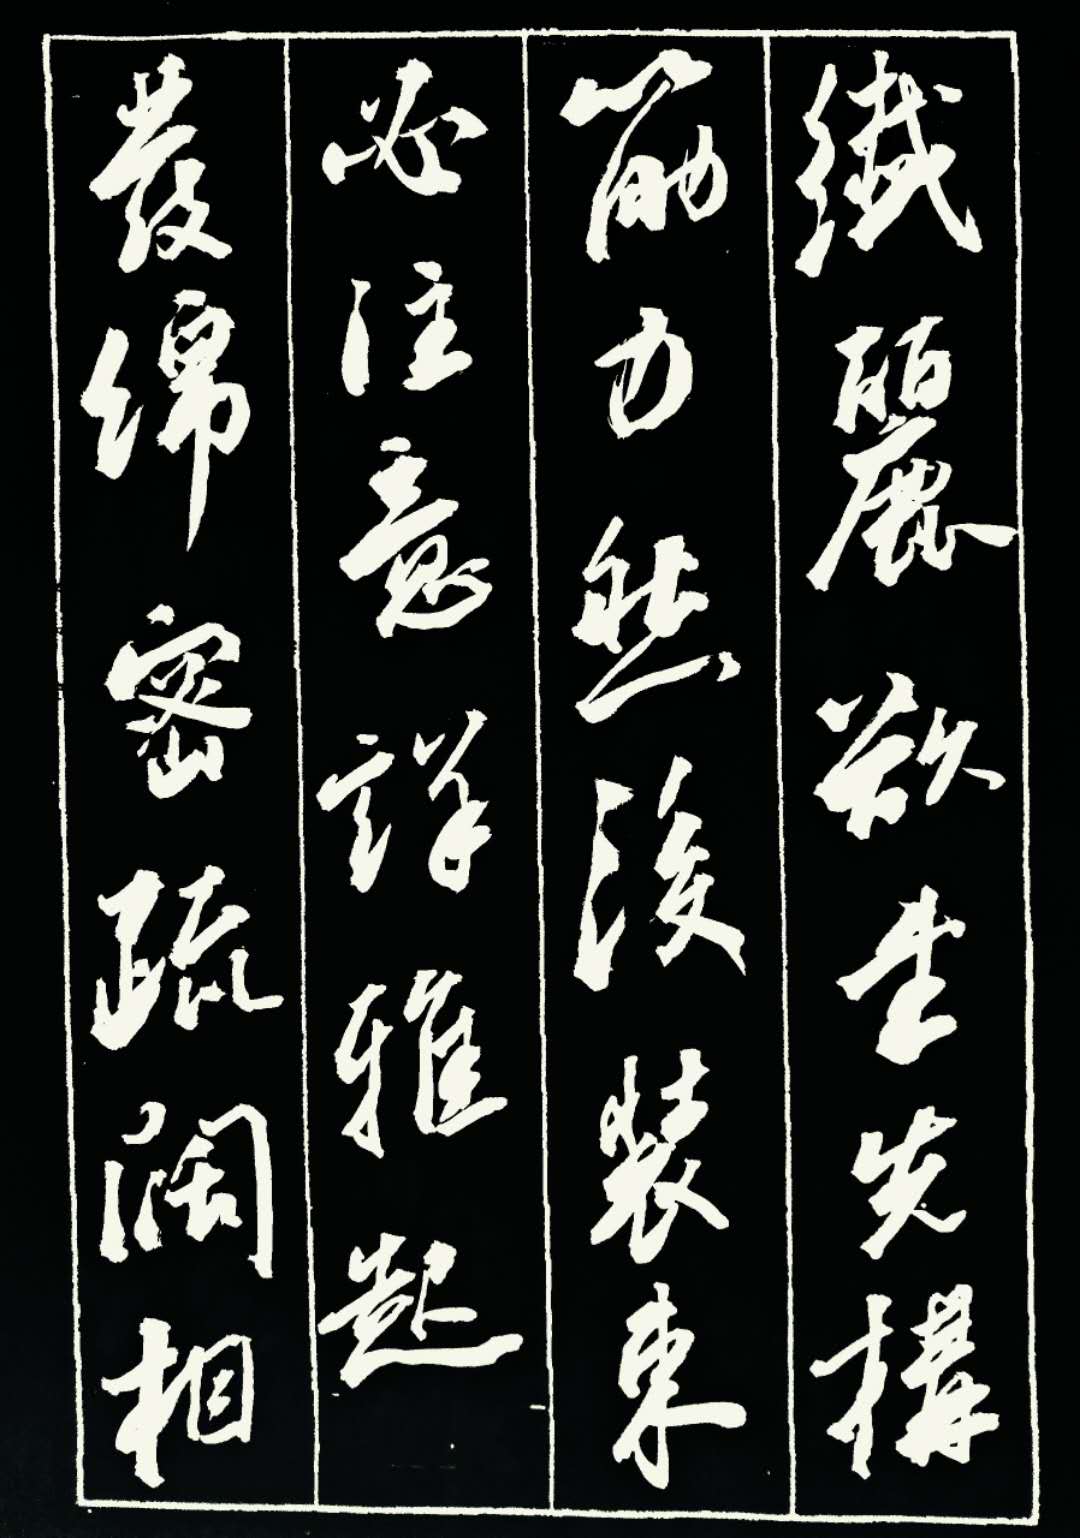 纖麗欲書先構
筋力然後裝束
必注意詳雅起
發綿密疏闊相